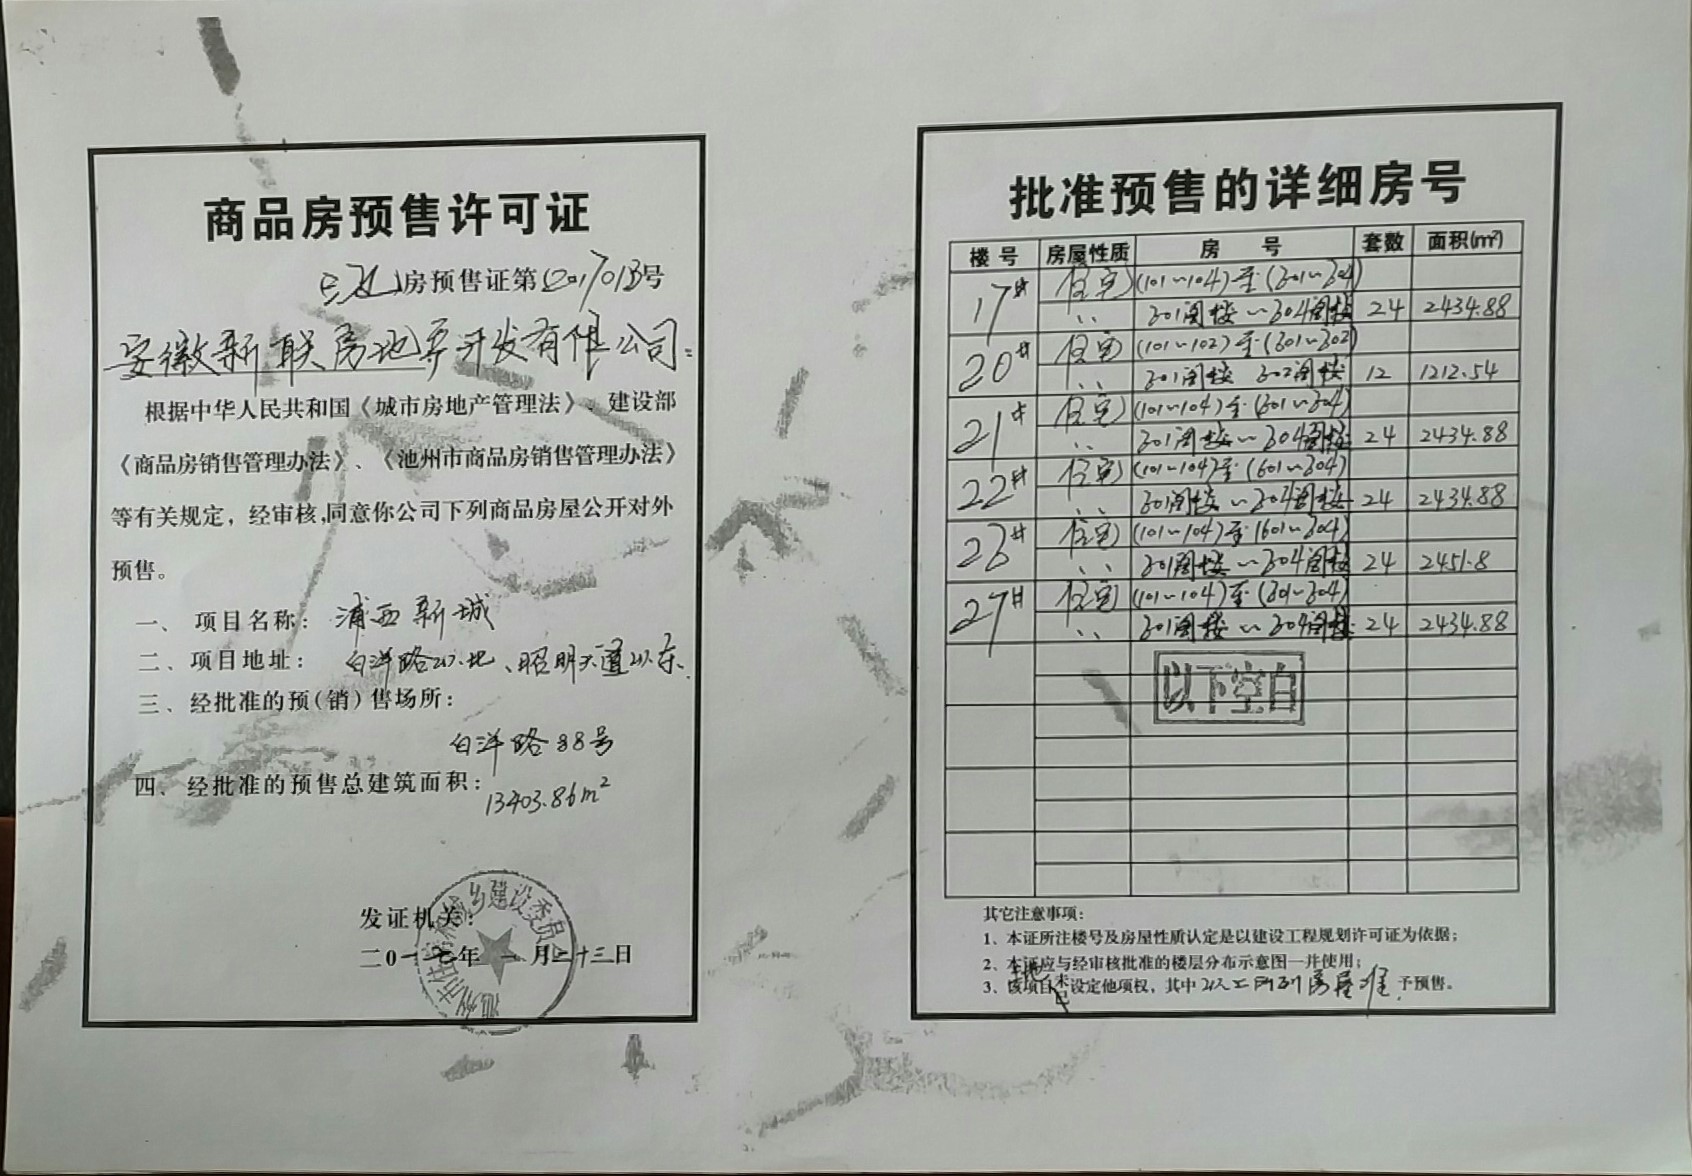 商品房预售许可证
房预售证第(2017013号
安徽新联房地产开发有限公司:
根据中华人民共和国《城市房地产管理法》、建设部
《商品房销售管理办法》、《池州市商品房销售管理办法》
等有关规定，经审核，同意你公司下列商品房屋公开对外
预售。
一、项目名称：浦西新城
二、项目地址：白洋路以北、昭明大道以东.
三、经批准的预(销)售场所：
白洋路88号
四、经批准的预售总建筑面积：13403.86m²
发证机关：
二0一七年一月二十三日
批准预售的详细房号
楼号 房屋性质 房号 套数 面积(m²)
17# 住宅 (101~104)至(301~304)
〃 301阁楼~304阁楼 24 2434.88
20# 住宅 (101~102)至(301~302)
〃 301阁楼 302阁楼 12 1212.54
21# 住宅 (101~104)至(301~304)
〃 301阁楼~304阁楼 24 2434.88
22# 住宅 (101~104)至(301~304)
〃 301阁楼~304阁楼 24 2434.88
23# 住宅 (101~104)至(301~304)
〃 301阁楼~304阁楼 24 2451.8
27# 住宅 (101~104)至(301~304)
〃 301阁楼~304阁楼 24 2434.88
以下空白
其它注意事项：
1、本证所注楼号及房屋性质认定是以建设工程规划许可证为依据；
2、本证应与经审核批准的楼层分布示意图一并使用；
3、该项目地未已设定他项权，其中以上所列房屋准予预售。